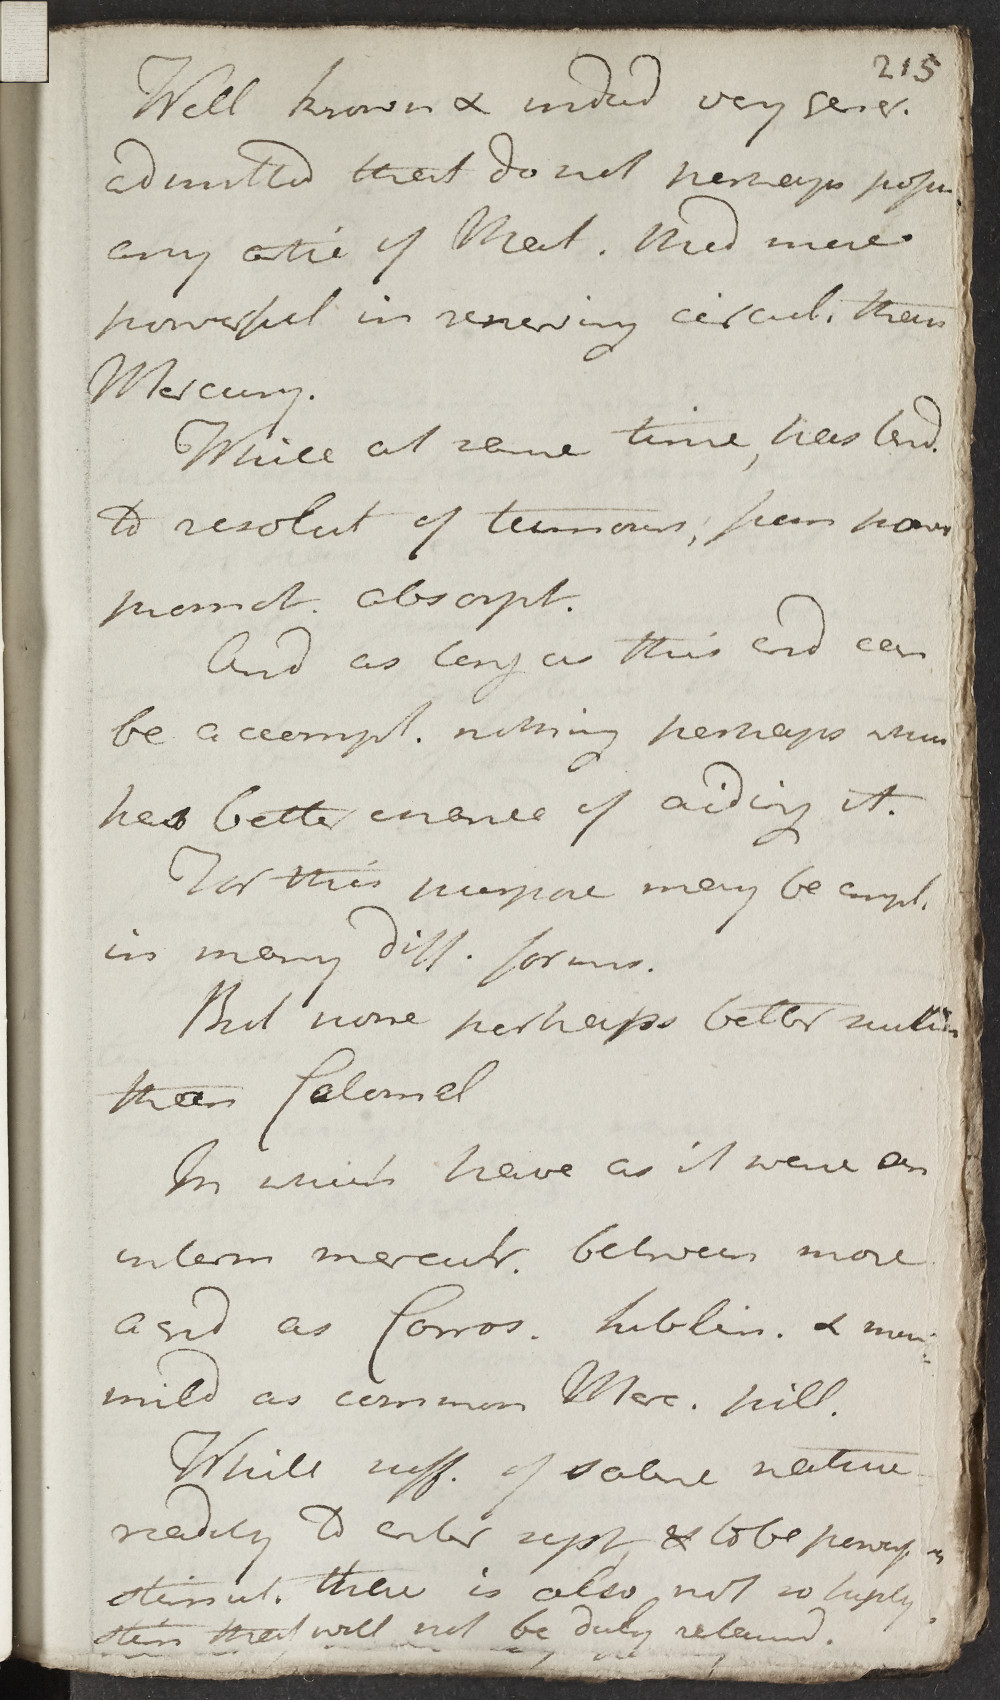 215
Well known & indeed very gener.
admitted that do not perhaps posse
any artic of Mat. Med more
powerful in renewing circul. than
Mercury.
While at same time, has tend.
to resolut of tumours, from power
promot. absorpt.
And as long as this end can
be accompl. nothing perhaps when
has better chance of aiding it.
For this purpose may be empl.
in many diff. forms.
But none perhaps better suited
than Calomel
In which have as it were an
interm mercur. between more
acrid as Corros. Sublim. & more
mild as common Merc. pill.
While suff. of saline nature
readily to enter syst, & to be powerf as
stimul. there is also not so highly
stim that will not be duly retained.